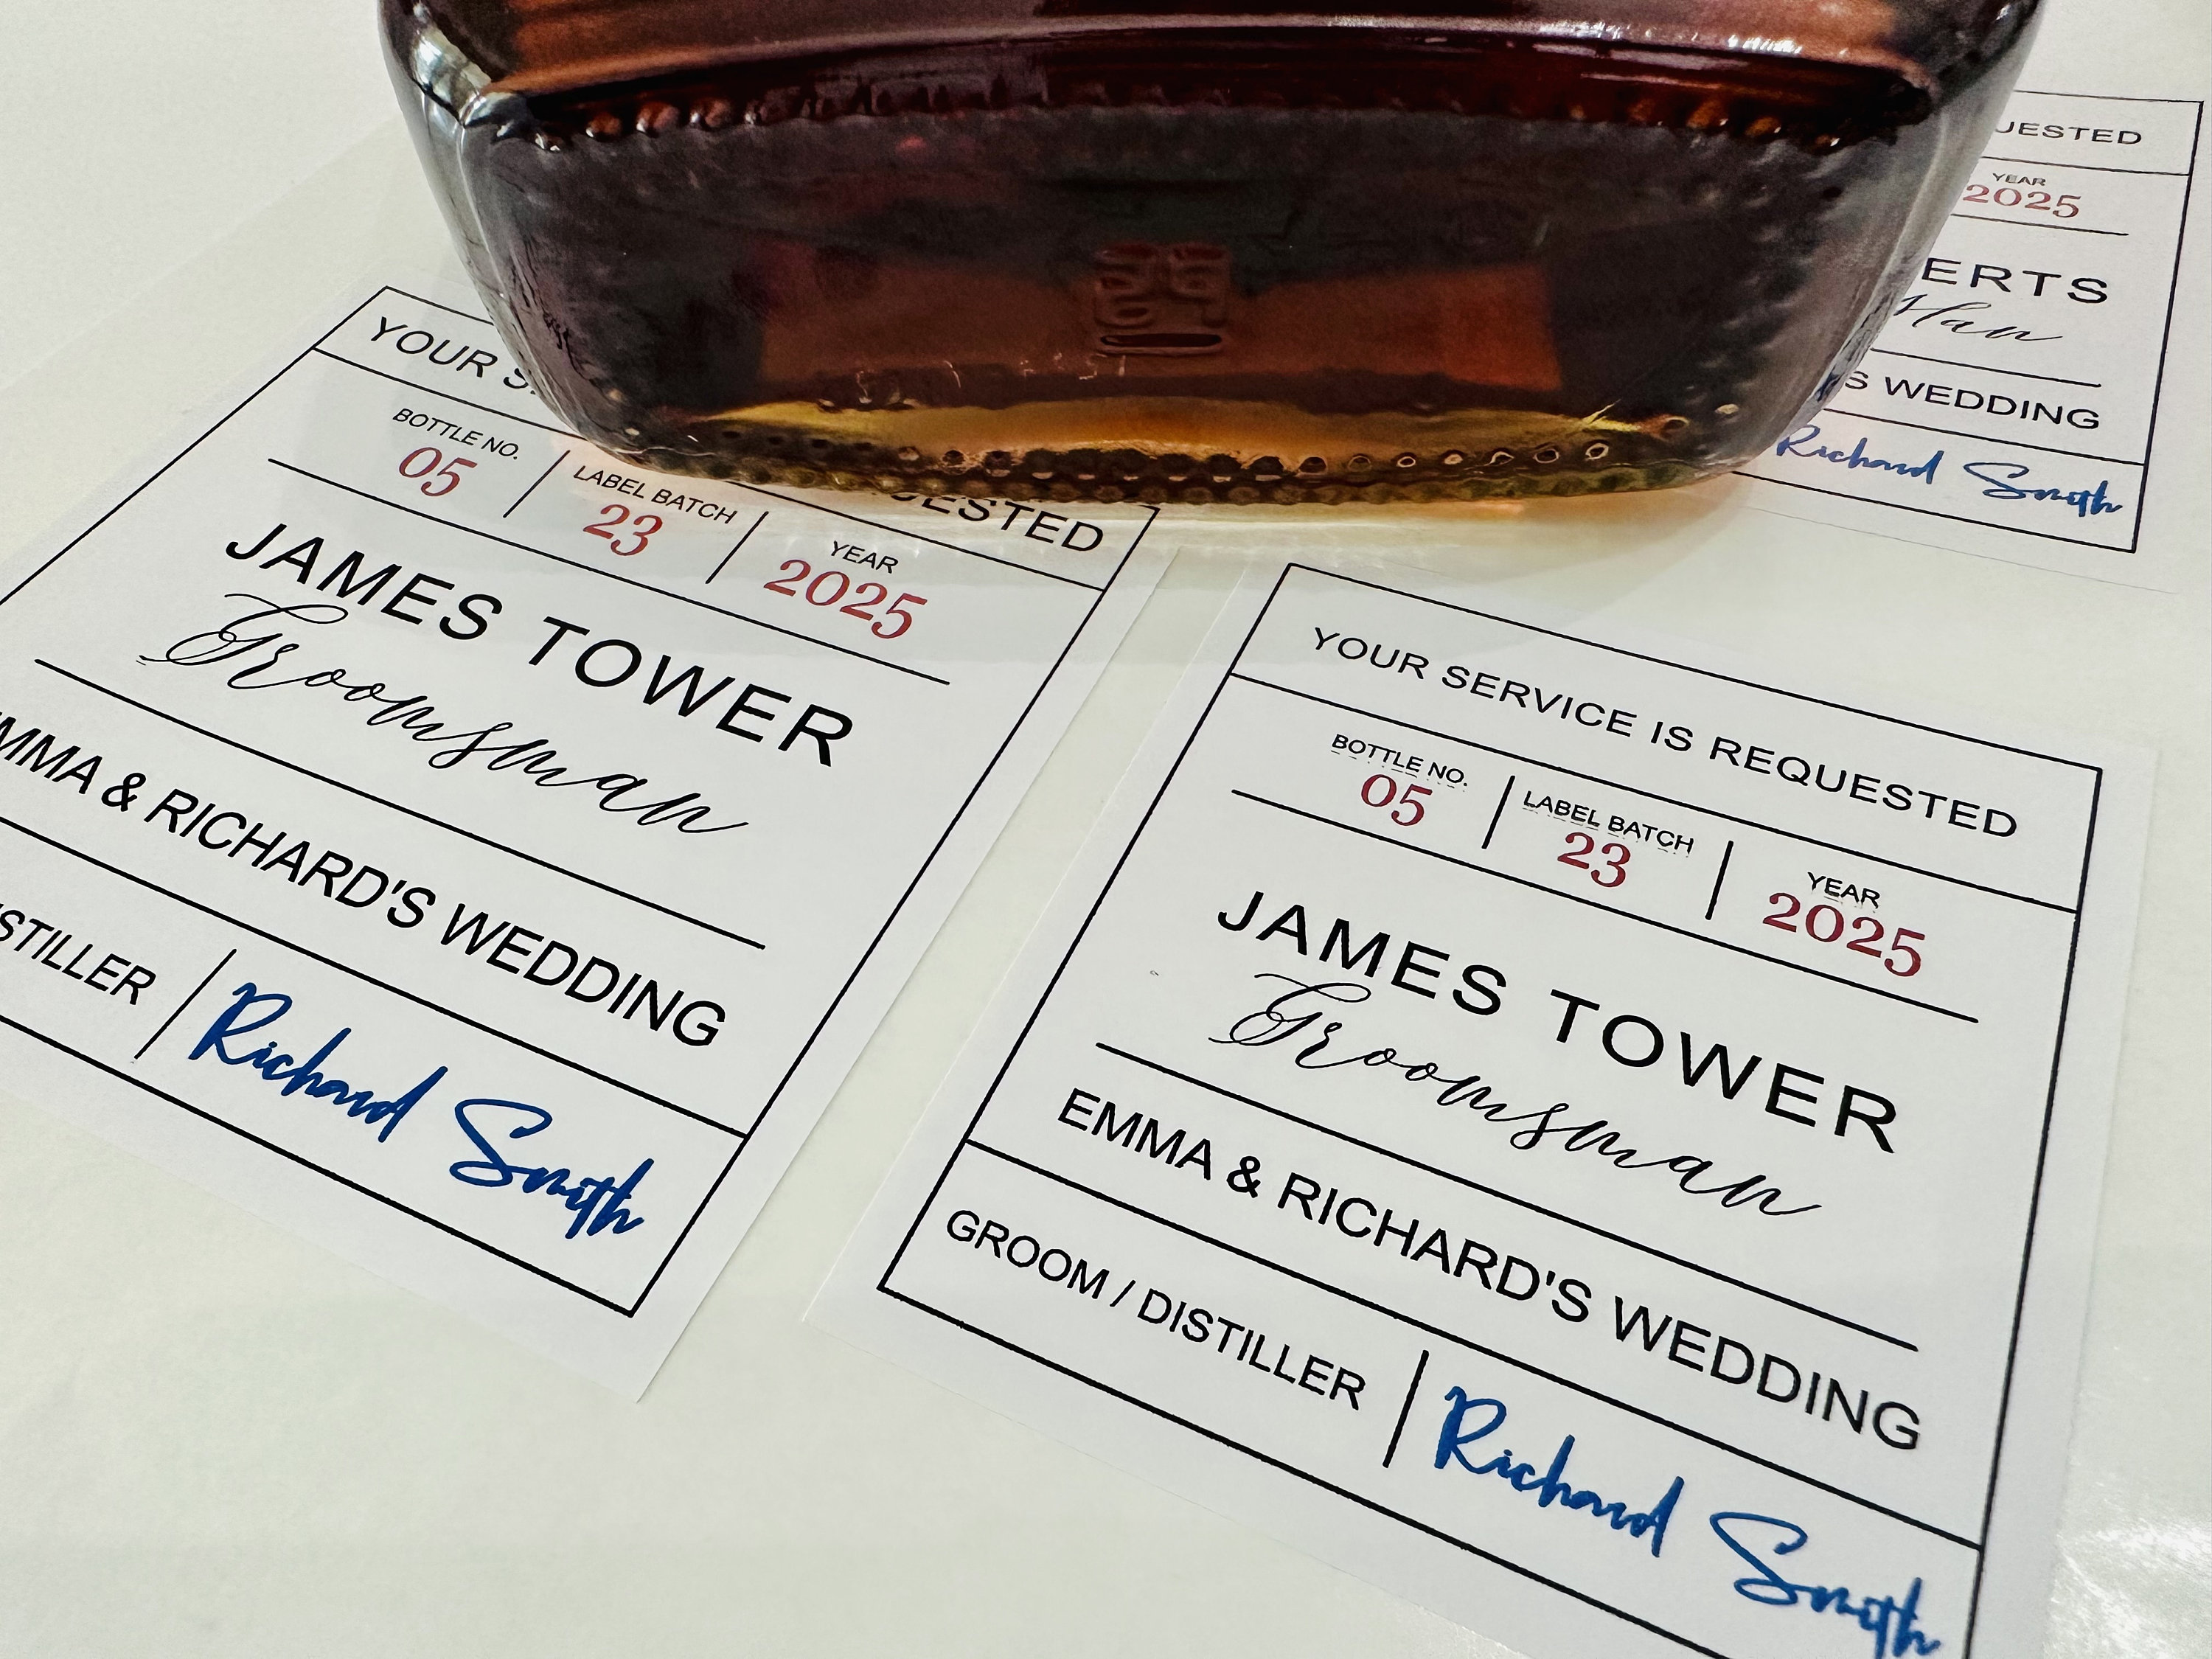 YOUR
ESTED
BOTTLE NO. LABEL BATCH YEAR
05 23 2025
JAMES TOWER
Groomsman
EMMA & RICHARD'S WEDDING
DISTILLER Richard Smith
YOUR SERVICE IS REQUESTED
BOTTLE NO. LABEL BATCH YEAR
05 23 2025
JAMES TOWER
Groomsman
EMMA & RICHARD'S WEDDING
GROOM / DISTILLER Richard Smith
UESTED
YEAR
2025
ERTS
Man
S WEDDING
Richard Smith